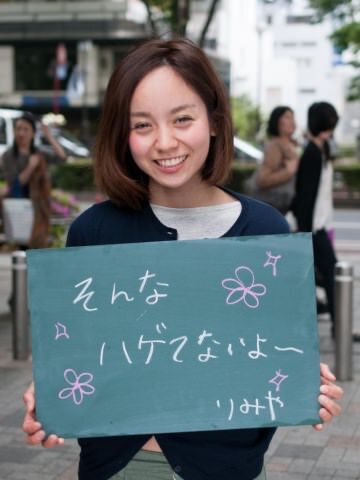 そんな
ハゲてないよ〜
りみや